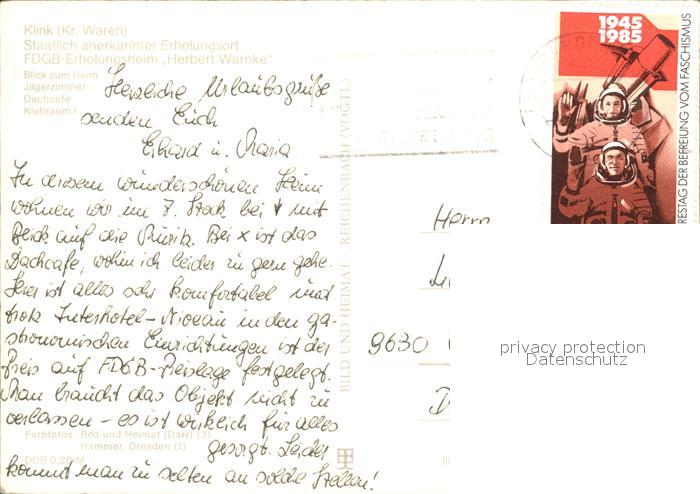 Klink (Kr. Waren)
Staatlich anerkannter Erholungsort
FDGB-Erholungsheim „Herbert Warnke"
Blick zum Heim
Jägerzimmer
Dachcafé
Klubraum I
Herzliche Urlaubsgrüße
senden Euch
Erhard u. Maria
In diesem wunderschönen Heim
wohnen wir im 7. Stock bei ↓ mit
Blick auf die Müritz. Bei x ist das
Dachcafe, wohin ich leider zu gern gehe.
Hier ist alles sehr komfortabel und
trotz Interhotel-Niveau in den ga-
stronomischen Einrichtungen ist der
Preis auf FDGB-Preislage festgelegt.
Man braucht das Objekt nicht zu
verlassen - es ist wirklich für alles
gesorgt. Leider
kommt man zu selten an solche Stellen!
Farbfotos: Bild und Heimat (Darr) (3)
Hammer, Dresden (1)
DDR 0,20 M
BILD UND HEIMAT · REICHENBACH (VOGTL)
1945
1985
RESTAG DER BEFREIUNG VOM FASCHISMUS
Herrn
9630
privacy protection
Datenschutz